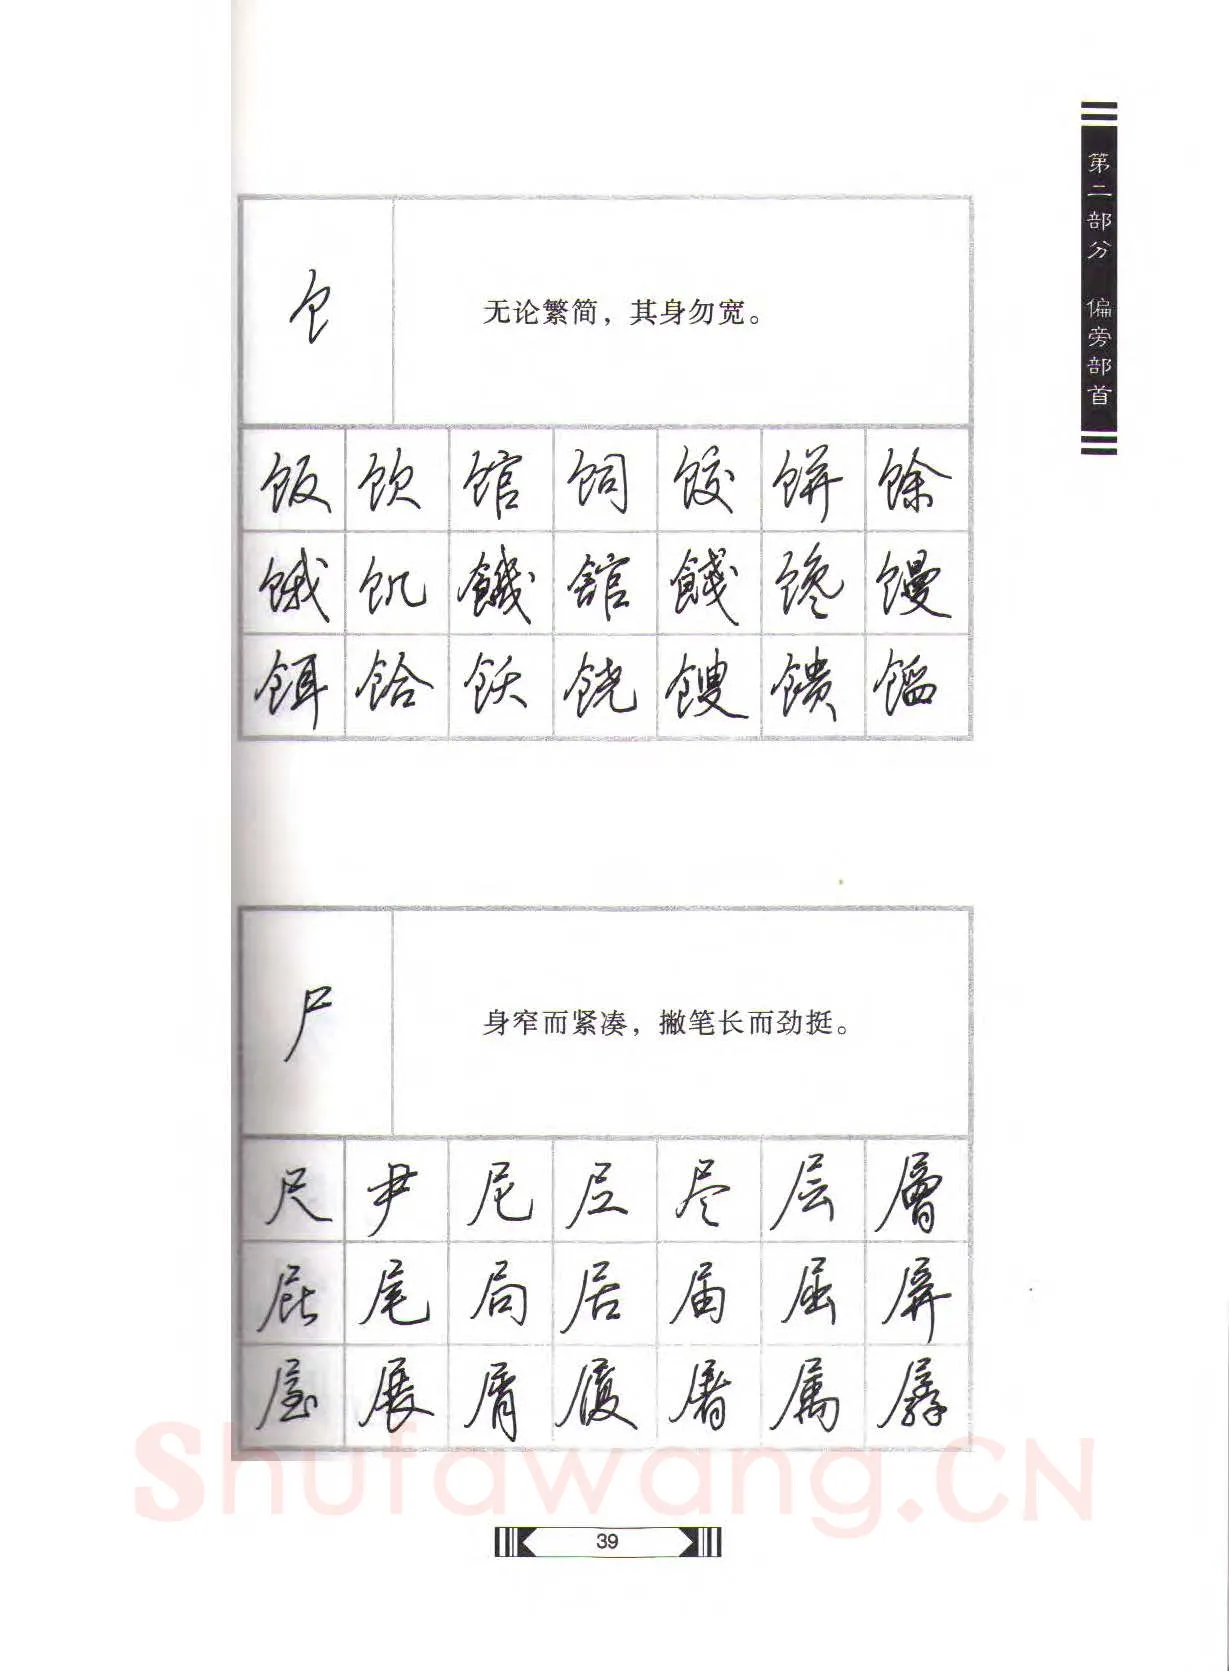 第二部分 偏旁部首
饣
无论繁简，其身勿宽。
饭 饮 馆 饲 饺 饼 馀
饿 饥 饑 舘 餞 馋 馒
饵 饸 饫 饶 馊 馈 馏
尸
身窄而紧凑，撇笔长而劲挺。
尺 尹 尼 尽 层 層
屁 尾 局 居 届 屈 屏
屋 展 屑 履 屠 属 孱
39
Shufawang.CN